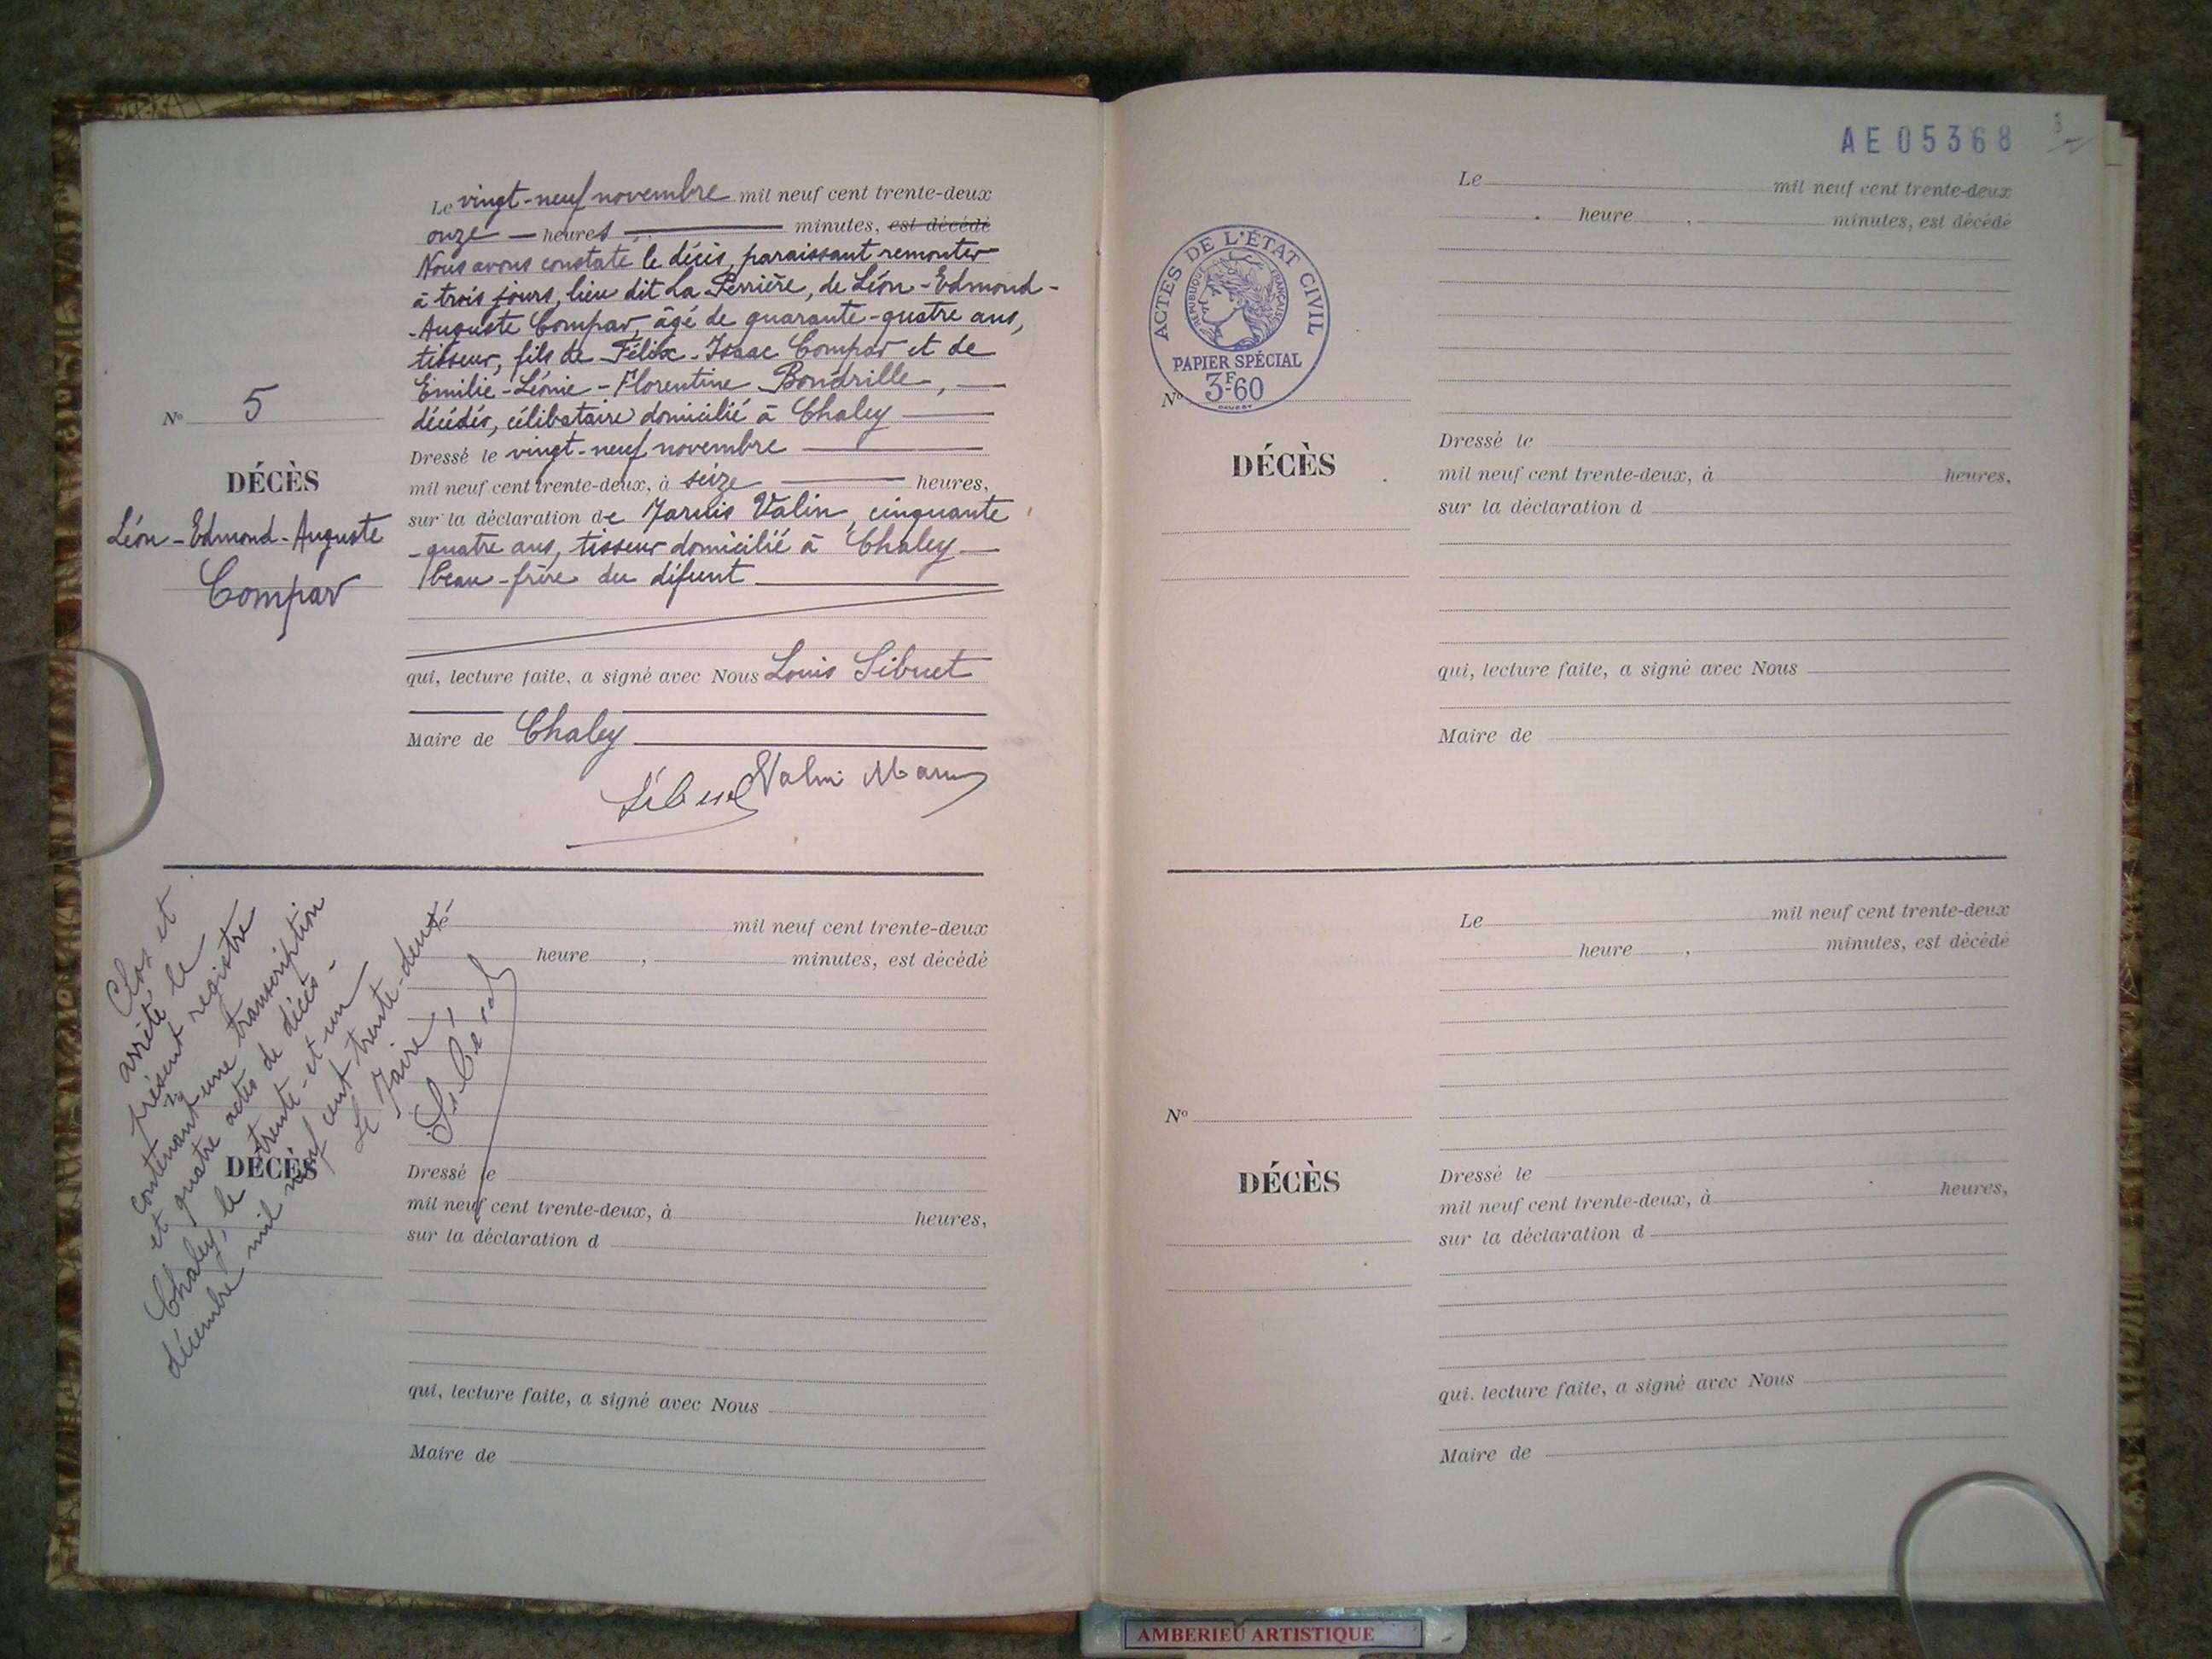 Le vingt-neuf novembre mil neuf cent trente-deux
onze heures minutes, est décédé
Nous avons constaté le décès, paraissant remonter
à trois jours, lieu dit La Perrière, de Léon-Edmond-
-Auguste Compar, âgé de quarante-quatre ans,
tisseur, fils de Félix-Isaac Compar et de
Emilie-Léonie-Florentine
décédés, célibataire domicilié à Chaley
N° 5
DÉCÈS
Léon-Edmond-Auguste
Compar
Dressé le vingt-neuf novembre
mil neuf cent trente-deux, à seize heures,
sur la déclaration de Valin, cinquante
-quatre ans, tisseur domicilié à Chaley
beau-frère du défunt
qui, lecture faite, a signé avec Nous Louis Sibuet
Maire de Chaley
Sibuet
Clos et
arrêté le
présent registre
contenant une transcription
et quatre actes de décès-
Chaley, le trente-et-un
décembre mil neuf cent trente-deux-
Le Maire
Sibuet
Le mil neuf cent trente-deux
heure , minutes, est décédé
DÉCÈS
Dressé le
mil neuf cent trente-deux, à heures,
sur la déclaration d
qui, lecture faite, a signé avec Nous
Maire de
AE05368
Le mil neuf cent trente-deux
heure , minutes, est décédé
ACTES DE L'ÉTAT CIVIL
RÉPUBLIQUE FRANÇAISE
PAPIER SPÉCIAL
3F.60
N°
DÉCÈS
Dressé le
mil neuf cent trente-deux, à heures,
sur la déclaration d
qui, lecture faite, a signé avec Nous
Maire de
Le mil neuf cent trente-deux
heure , minutes, est décédé
N°
DÉCÈS
Dressé le
mil neuf cent trente-deux, à heures,
sur la déclaration d
qui, lecture faite, a signé avec Nous
Maire de
AMBERIEU ARTISTIQUE